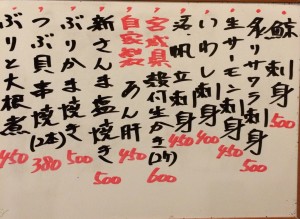 鯨刺身 500
炙りサワラ刺身 500
生サーモン刺身 450
いわし刺身 400
活帆立刺身 450
宮城県 殻付生かき(2ケ) 600
自家製 あん肝 450
新さんま塩焼き 500
ぶりかま焼き 500
つぶ貝串焼(2本) 380
ぶりと大根煮 450